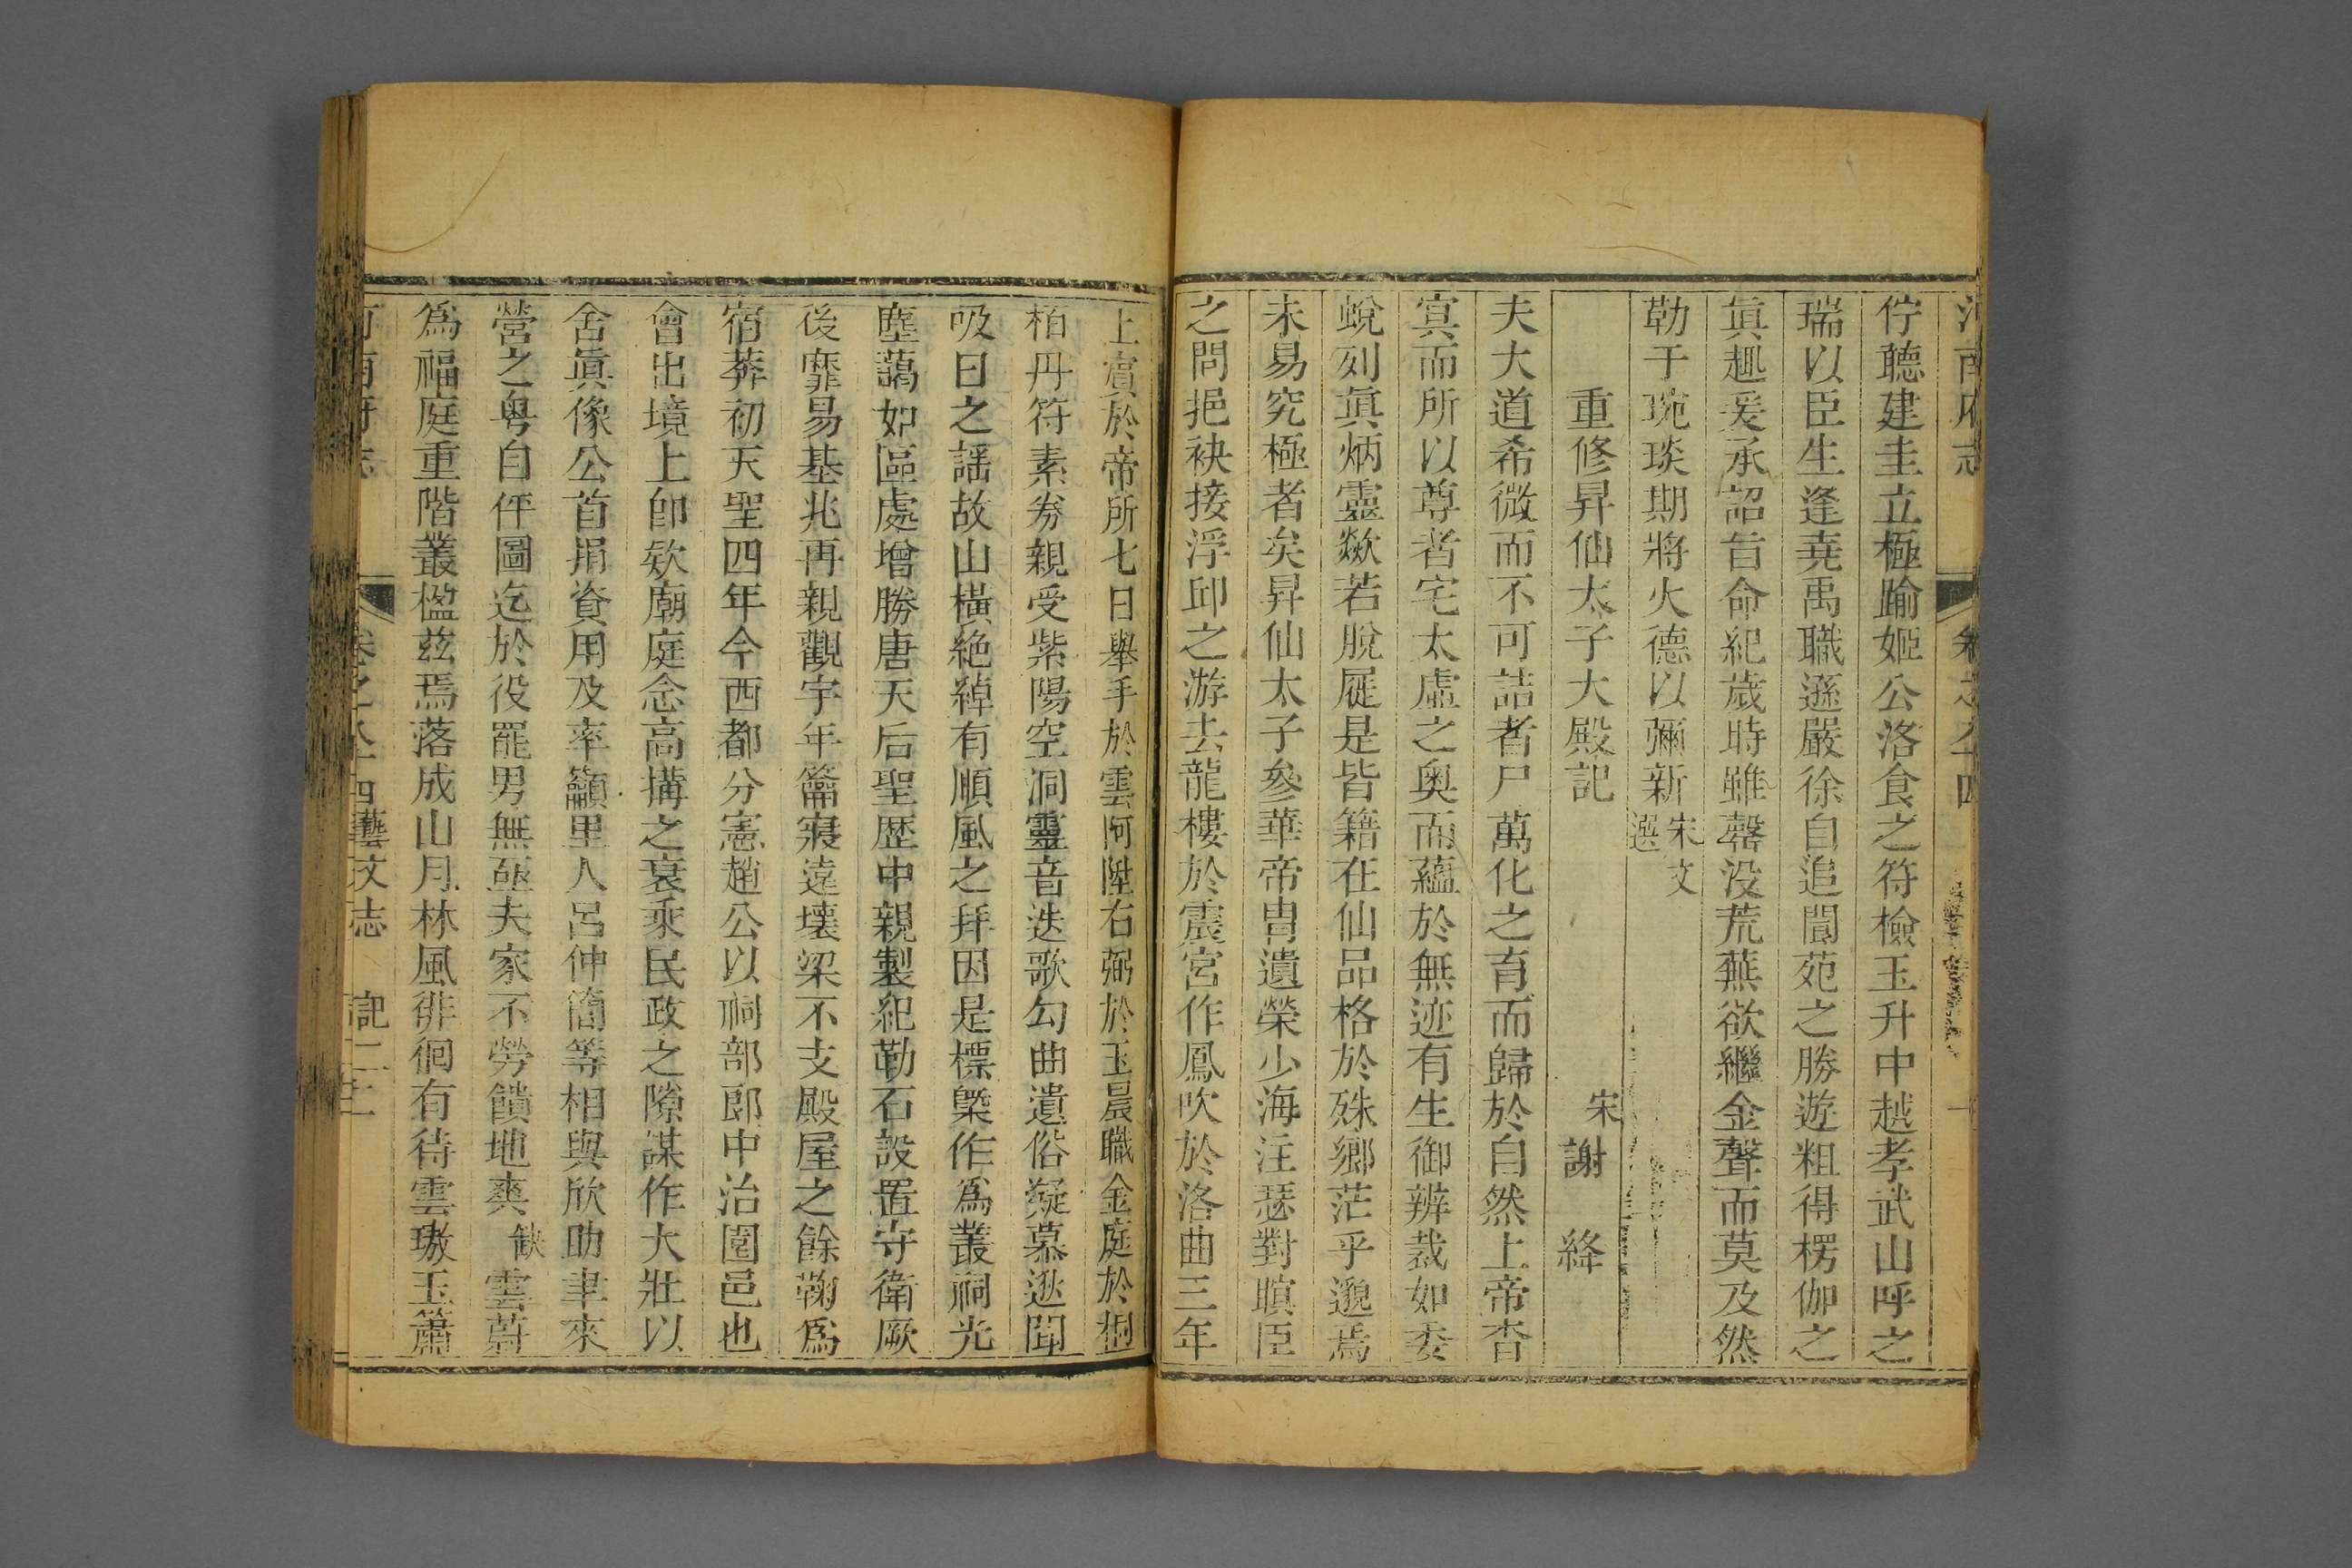 河南府志
佇聽建圭立極踰姬公洛食之符檢玉升中越孝武山呼之
瑞以臣生逢堯禹職遜嚴徐自追閬苑之勝遊粗得楞伽之
眞趣爰承詔旨命紀歲時雖罄没荒蕪欲繼金聲而莫及然
勒于琬琰期將火德以彌新宋文選
重修昇仙太子大殿記 宋謝絳
夫大道希微而不可詰者尸萬化之育而歸於自然上帝杳
冥而所以尊者宅太虛之奧而蘊於無迹有生御辨裁如委
蛻列眞炳靈歘若脫屣是皆籍在仙品格於殊鄉茫乎邈焉
未易究極者矣昇仙太子參華帝胄遺榮少海注瑟對瞑臣
之問挹袂接浮邱之游去龍樓於震宮作鳳吹於洛曲三年
上賓於帝所七日舉手於雲阿陞右弼於玉晨職金庭於桐
柏丹符素券親受紫陽空洞靈音迭歌勾曲遺俗凝慕逖聞
吸日之謠故山橫絶綽有順風之拜因是標㮣作爲叢祠光
塵藹如區處增勝唐天后聖歷中親製紀勒石設置守衛厥
後靡易基兆再親觀宇年籥寢遠壞梁不支殿屋之餘鞠爲
宿莽初天聖四年今西都分憲趙公以祠部郎中治圉邑也
會出境上卽欵廟庭念高搆之衰乘民政之隙謀作大壯以
舍眞像公首捐資用及率籲里人呂仲簡等相與欣助聿來
營之粤自伻圖迄於役罷男無亟夫家不勞饋地爽缺雲蔚
爲福庭重階叢楹茲焉落成山月林風徘徊有待雲璈玉簫
河南府志 卷之八十四藝文志 記二